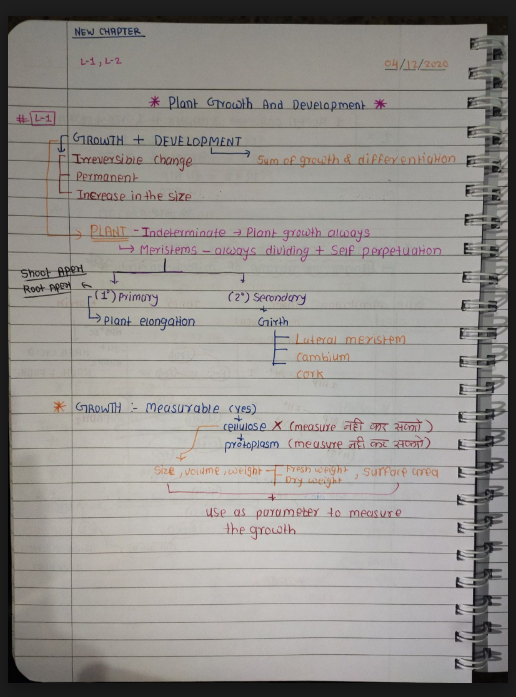 NEW CHAPTER
L-1, L-2
04/12/2020
* Plant Growth And Development *
# L-1
GROWTH + DEVELOPMENT
Irreversible change
Sum of growth & differentiation
Permanent
Increase in the size
PLANT - Indeterminate → Plant growth always
↳ Meristems - always dividing + Self perpetuation
Shoot Apex
Root Apex
(1°) Primary
(2°) Secondary
Plant elongation
Girth
Lateral meristem
cambium
cork
* GROWTH :- Measurable (yes)
cellulose X (measure नही कर सकते)
protoplasm (measure नही कर सकते)
Size, volume, weight - Fresh weight, surface area
Dry weight
use as parameter to measure
the growth